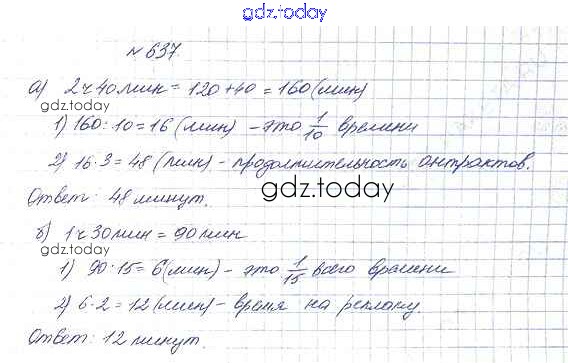 gdz.today
№ 637
а) 2ч 40 мин = 120 + 40 = 160 (мин)
gdz.today
1) 160 : 10 = 16 (мин) - это 1/10 времени
2) 16 · 3 = 48 (мин) - продолжительность антрактов.
Ответ: 48 минут.
gdz.today
б) 1 ч 30 мин = 90 мин
gdz.today
1) 90 : 15 = 6 (мин) - это 1/15 всего времени
2) 6 · 2 = 12 (мин) - время на рекламу.
Ответ: 12 минут.